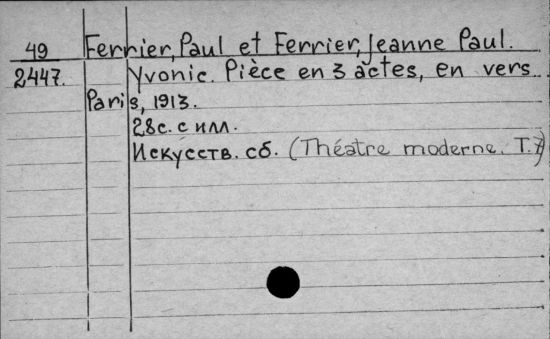 49 Ferrier, Paul et Ferrier, Jeanne Paul.
2447. Yvonic. Pièce en 3 actes, en vers.
Paris, 1913.
28с. с илл.
Искусств. сб. (Théatre moderne. T.7)